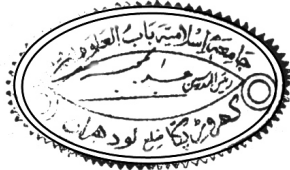 جامعہ اسلامیہ باب العلوم
رئیس المدرسین
کہروڑ پکا ضلع لودھراں